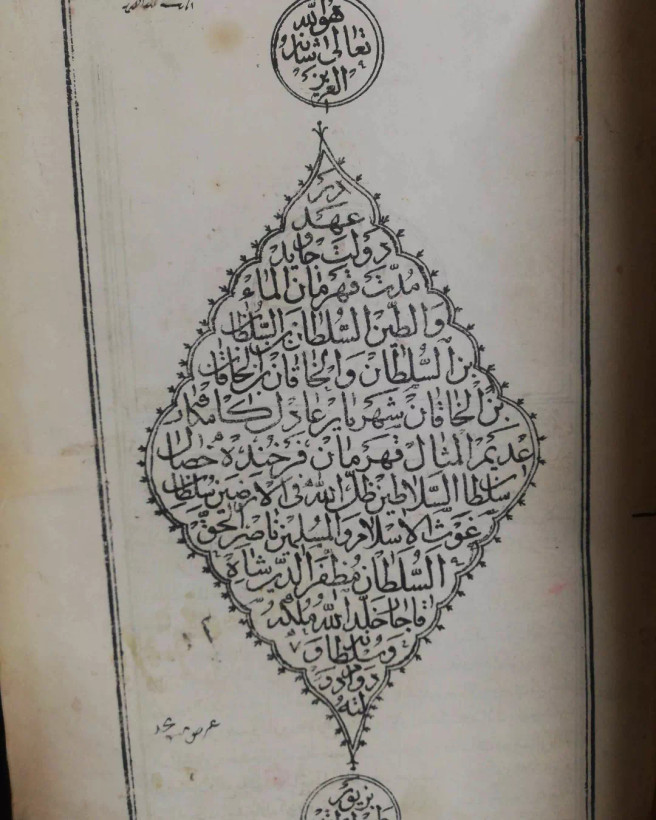 هوالله
تعالی شانه
العزیز
در
عهد
دولت جاوید
مدّت قهرمان الماء
والطین السّلطان بن السّلطان
بن السّلطان والخاقان بن الخاقان
بن الخاقان شهریار عادل کامکار
عدیم المثال قهرمان فرخنده خصال
سلطان السلاطین ظلّ الله فی الارضین سلطان
غوث الاسلام والمسلمین ناصر الحق
السّلطان مظفّر الدّین شاه
قاجار خلّد الله ملکه
وسلطانه و
دوام دو
لته
بزیور